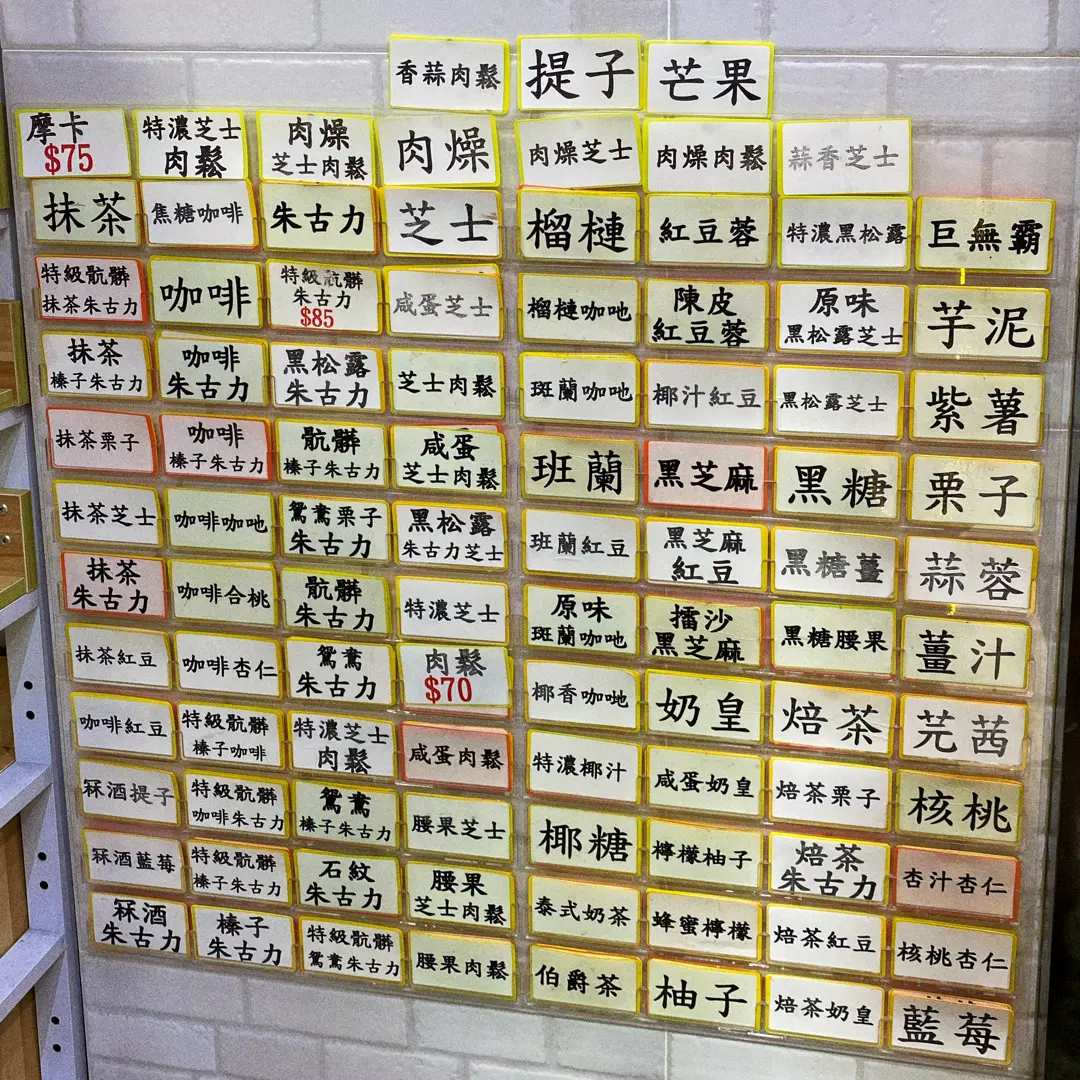 香蒜肉鬆
提子
芒果
摩卡
$75
特濃芝士
肉鬆
肉燥
芝士肉鬆
肉燥
肉燥芝士
肉燥肉鬆
蒜香芝士
抹茶
焦糖咖啡
朱古力
芝士
榴槤
紅豆蓉
特濃黑松露
巨無霸
特級骯髒
抹茶朱古力
咖啡
特級骯髒
朱古力
$85
咸蛋芝士
榴槤咖吔
陳皮
紅豆蓉
原味
黑松露芝士
芋泥
抹茶
榛子朱古力
咖啡
朱古力
黑松露
朱古力
芝士肉鬆
斑蘭咖吔
椰汁紅豆
黑松露芝士
紫薯
抹茶栗子
咖啡
榛子朱古力
骯髒
榛子朱古力
咸蛋
芝士肉鬆
班蘭
黑芝麻
黑糖
栗子
抹茶芝士
咖啡咖吔
鴛鴦栗子
朱古力
黑松露
朱古力芝士
班蘭紅豆
黑芝麻
紅豆
黑糖薑
蒜蓉
抹茶
朱古力
咖啡合桃
骯髒
朱古力
特濃芝士
原味
斑蘭咖吔
擂沙
黑芝麻
黑糖腰果
薑汁
抹茶紅豆
咖啡杏仁
鴛鴦
朱古力
肉鬆
$70
椰香咖吔
奶皇
焙茶
芫茜
咖啡紅豆
特級骯髒
榛子咖啡
特濃芝士
肉鬆
咸蛋肉鬆
特濃椰汁
咸蛋奶皇
焙茶栗子
核桃
冧酒提子
特級骯髒
咖啡朱古力
鴛鴦
榛子朱古力
腰果芝士
椰糖
檸檬柚子
焙茶
朱古力
杏汁杏仁
冧酒藍莓
特級骯髒
榛子朱古力
石紋
朱古力
腰果
芝士肉鬆
泰式奶茶
蜂蜜檸檬
焙茶紅豆
核桃杏仁
冧酒
朱古力
榛子
朱古力
特級骯髒
鴛鴦朱古力
腰果肉鬆
伯爵茶
柚子
焙茶奶皇
藍莓